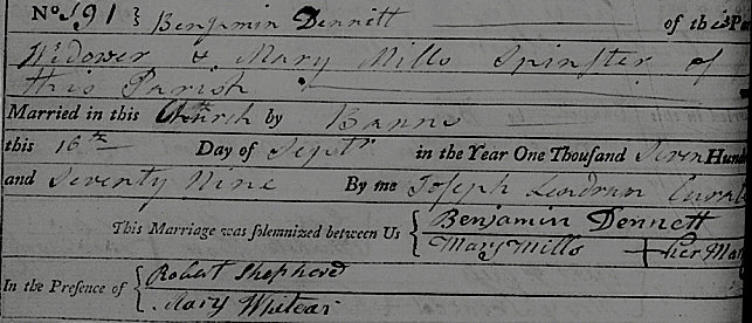 No. 191 } Benjamin Dennett of this Pa
Widower & Mary Mills Spinster of
this Parish
Married in this Church by Banns
this 16th Day of Septr in the Year One Thousand Seven Hund
and Seventy Nine By me Joseph Lendrum Curat
This Marriage was solemnized between Us { Benjamin Dennett
Mary Mills + her Mar
In the Presence of { Robert Shepherd
Mary Whitear